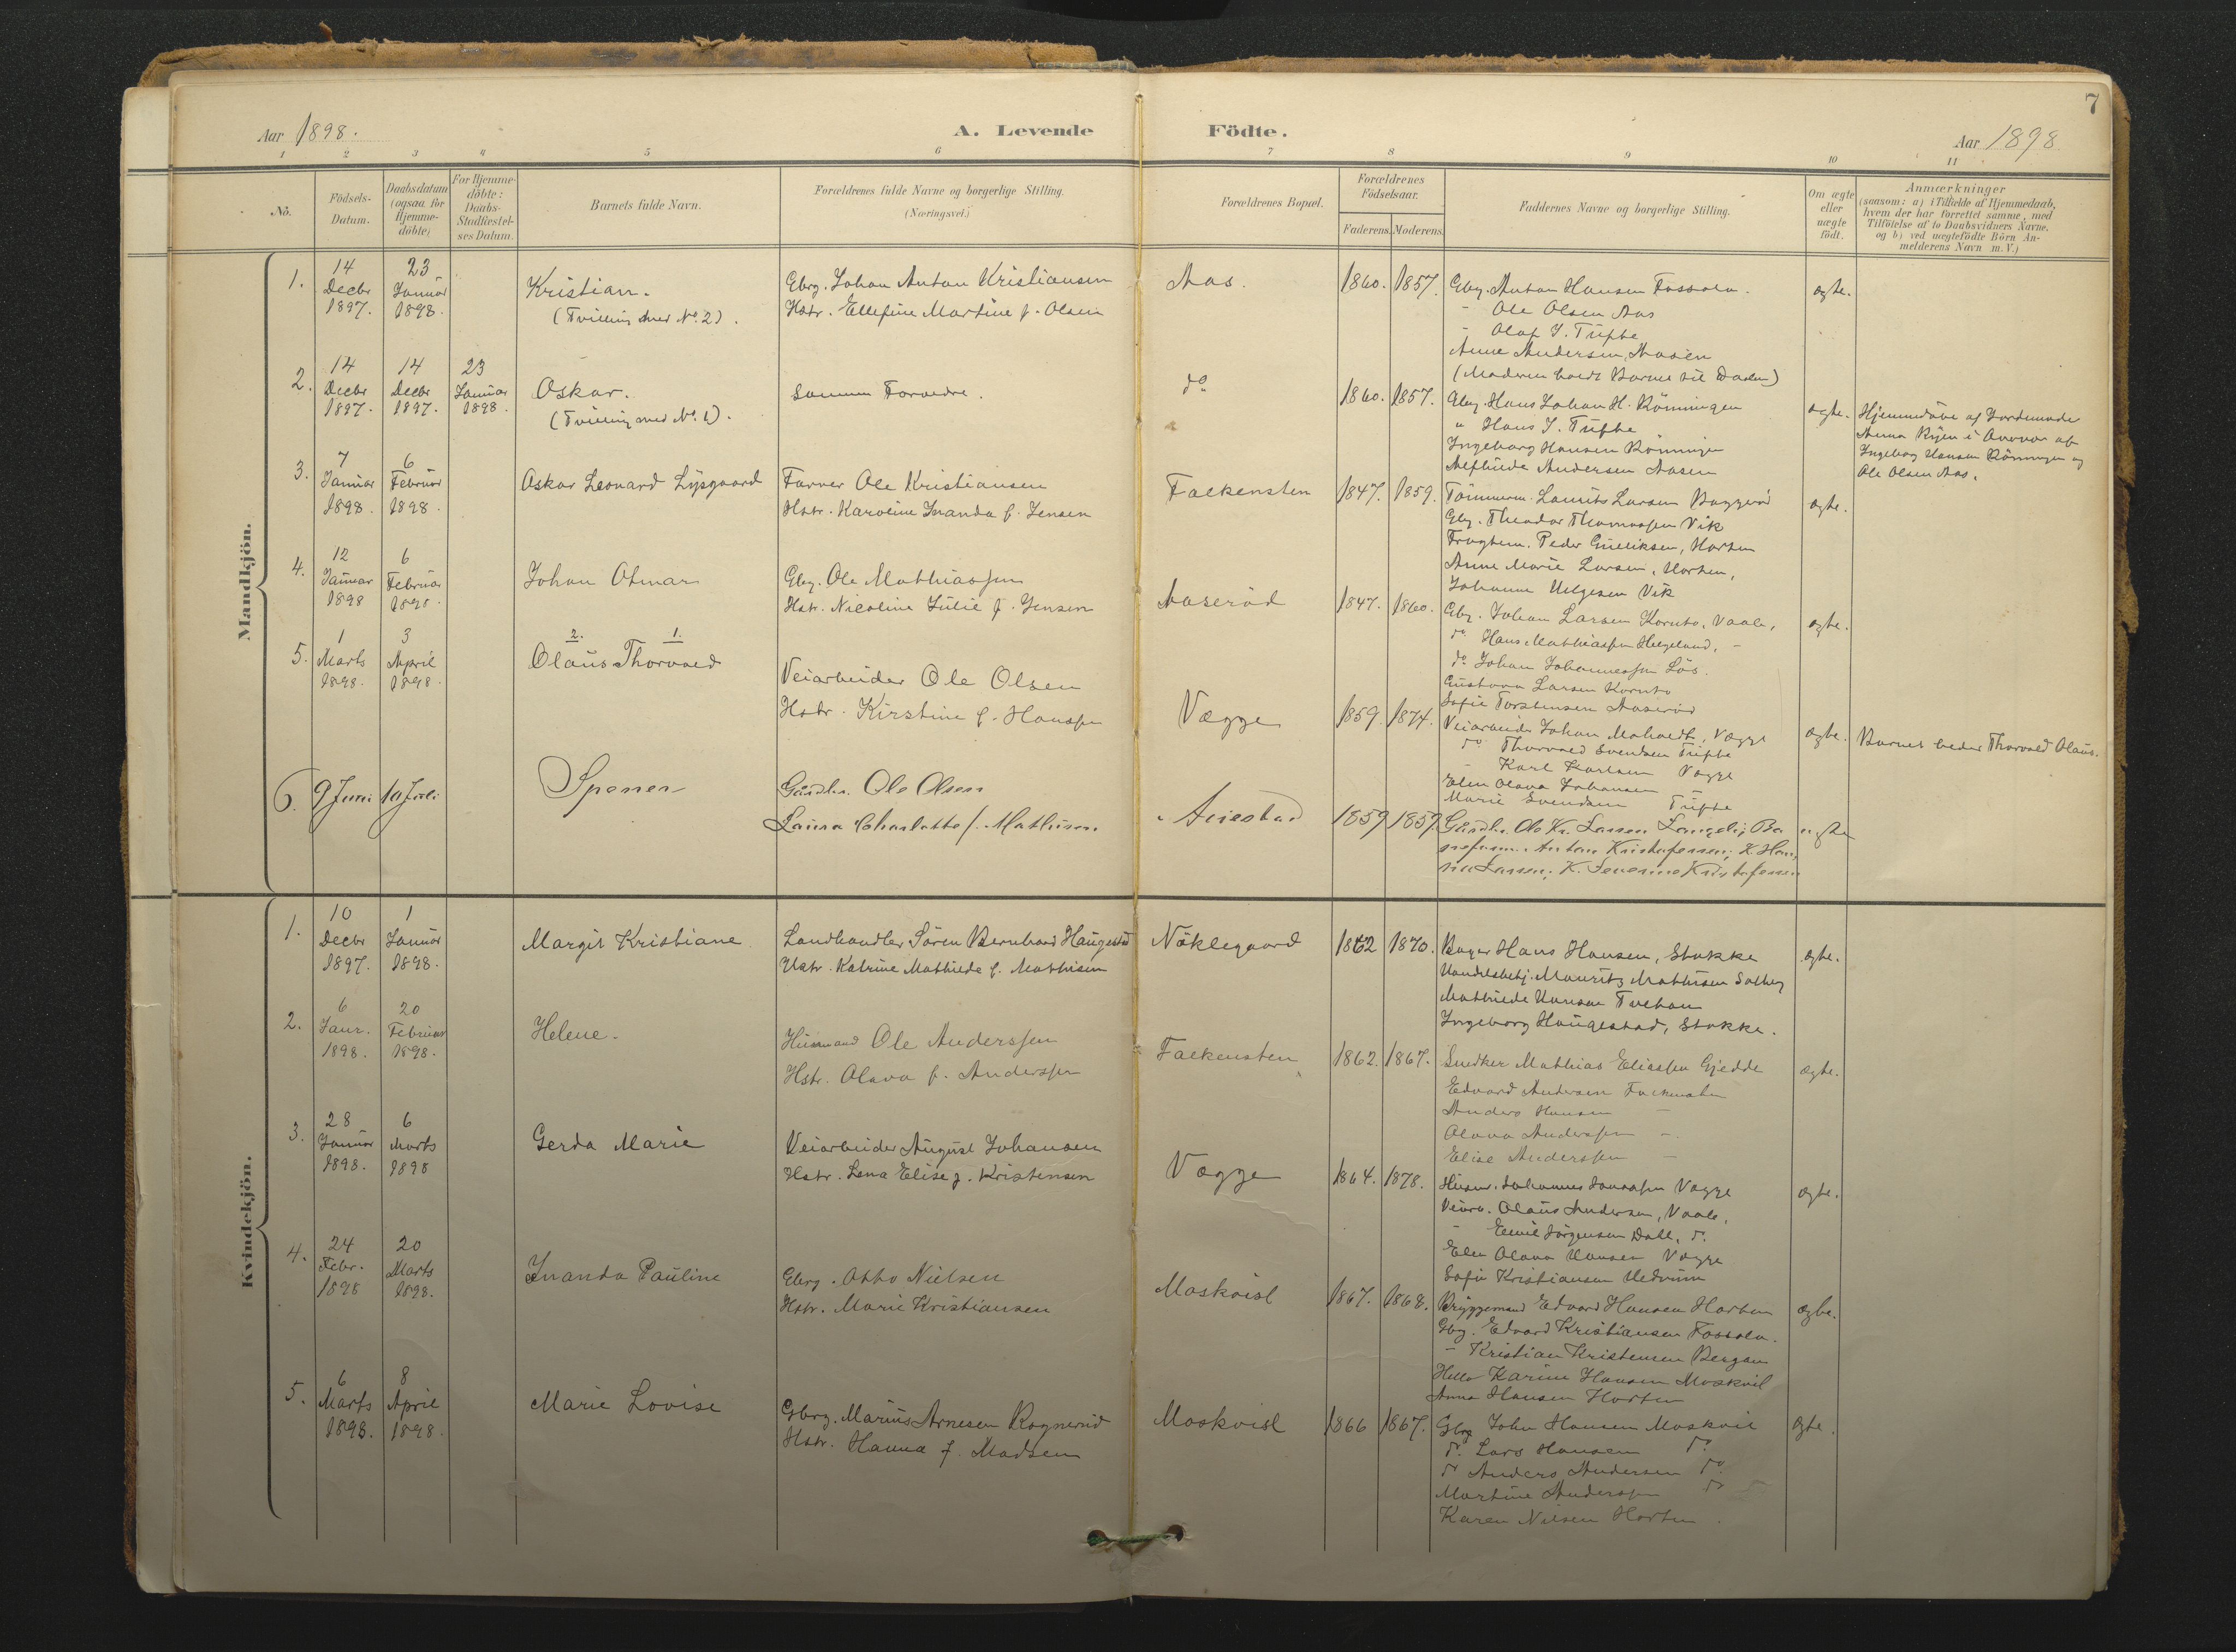 7
Aar 1898.
A. Levende Födte.
Aar 1898
1 2 3 4 5 6 7 8 9 10 11
No.
Födsels-
Datum.
Daabsdatum
(ogsaa for
Hjemme-
döbte)
For Hjemme-
döbte:
Daabs-
Stadfæstel-
ses Datum.
Barnets fulde Navn.
Forældrenes fulde Navne og borgerlige Stilling.
(Næringsvei.)
Forældrenes Bopæl.
Forældrenes
Födselsaar.
Faderens. Moderens.
Faddernes Navne og borgerlige Stilling.
Om ægte
eller
uægte
födt.
Anmærkninger
(saasom: a) i Tilfælde af Hjemmedaab,
hvem der har forrettet samme, med
Tilföielse af to Daabsvidners Navne.
og b) ved uægtefödte Börn An-
melderens Navn m. V.)
Mandkjön.
1.
14
Decbr
1897.
23
Januar
1898.
Kristian.
(Tvilling med No. 2).
Gbrg. Johan Anton Kristiansen
Hstr. Ellefine Martine f. Olsen
Aas.
1860. 1857.
Gbrg. Anton Hansen Fossola.
- Ole Olsen Aas
- Olaf J. Tufte
Anne Andersen, Aasen
(Moderen holdt Barnet til Daaben)
ægte.
2.
14
Decbr
1897.
14
Decbr
1897.
23
Januar
1898.
Oskar.
(Tvilling med No. 1).
samme Forældre.
do
1860. 1857.
Gbrg. Hans Johan H. Rönningen
" Hans J. Tufte
Ingeborg Hansen Rönningen
Andersen Aasen
ægte.
Hjemmedöbt af Jordemoder
Anna
Ingeborg Hansen Rönningen og
Ole Olsen Aas.
3.
7
Januar
1898.
6
Februar
1898.
Oskar Leonard Lysgaard
Farver Ole Kristiansen
Hstr. Karoline Inanda f. Jensen
Falkensten
1847. 1859.
Tömmerm. Laurits Larsen Baggeröd
Gbrg. Theodor Thomassen Vik
Fragtem. Peder Gulliksen, Horten
Anne Marie Larsen, Horten,
Johanne Helgesen Vik
ægte.
4.
12
Januar
1898
6
Februar
1898.
Johan Otmar
Gbrg. Ole Mathiassen
Hstr. Nicoline Julie f. Jensen
Aaseröd
1847. 1860.
Gbrg. Johan Larsen Kornto, Vaale,
do Hans Mathiassen Helgeland, -
do Johan Johannessen Lös.
Gustava Larsen Kornto
Sofie Torstensen Aaseröd
ægte.
5.
1
Marts
1898.
3
April
1898.
2. 1.
Olaus Thorvald
Veiarbeider Ole Olsen
Hstr. Kirstine f. Hanssen
Vegge
1859. 1874.
Veiarbeider Johan Vegge
do Thorvald Svendsen Tufte
- Karl Karlsen Vegge
Elen Olava Johansen -
Marie Svendsen Tufte
ægte.
Barnet heder Thorvald Olaus.
6.
9 Juni
10 Juli
Spener
Gaardbr. Ole Olsen
Laura Charlotte f. Mathisen
Auestad
1859 1857
Gaardbr. Ole Kr. Larsen Langeli; Ba
Anton Kristofersen; K. Han
na Larsen; K. Severine Kristofersen
ægte
Kvindekjön.
1.
10
Decbr
1897.
1
Januar
1898.
Margit Kristiane
Landhandler Sören Bernhard Haugestad
Hstr. Katrine Mathilde f. Mathisen
Nöklegaard
1862 1870.
Bager Hans Hansen, Stokke
Handelsbetj. Mauritz Mathisen Solberg
Mathilde Hansen
Ingeborg Haugestad, Stokke.
ægte.
2.
6
Janr.
1898.
20
Februar
1898.
Helene.
Husmand Ole Anderssen
Hstr. Olava f. Anderssen
Falkensten
1862. 1867.
Snedker Mathias Eliassen Gjedde
Edvard Andersen Falkensten
Anders Hansen -
Olava Anderssen -
Elise Anderssen -
ægte.
3.
28
Januar
1898.
6
Marts
1898
Gerda Marie
Veiarbeider August Johansen
Hstr. Lena Elise f. Kristensen
Vegge
1864. 1878.
Husm. Johannes Vegge
Veiarb. Olaus Andersen, Vaale,
- Emil Jörgensen Dall, do.
Elen Olava Hansen Vegge
Sofie Kristiansen Hedrum
ægte.
4.
24
Febr.
1898
20
Marts
1898.
Inanda Pauline
Gbrg. Otto Nielsen
Hstr. Marie Kristiansen
Moskvisl
1867. 1868.
Bryggemand Edvard Hansen Horten
Gbrg. Edvard Kristiansen Fossola.
- Kristian Kristensen Bergan
Karine Hansen Moskvil
Anna Hansen Horten
ægte.
5.
6
Marts
1898.
8
April
1898.
Marie Lovise
Gbrg. Marius Arnesen Rognerud
Hstr. Hanna f. Madsen
Moskvisl
1866 1867.
Gbrg John Hansen Moskvil
do. Lars Hansen do.
do Anders Andersen do.
Martine Anderssen do
Karen Nilsen Horten.
ægte.